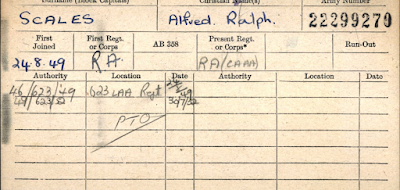 Surname (Block Capitals) Christian Name(s) Army Number
SCALES Alfred Ralph. 22299270
First Joined First Regt. or Corps AB 358 Present Regt. or Corps* Run-Out
24.8.49 RA. RA(CAAA)
Authority Location Date Authority Location Date
46/623/49 623 LAA Regt
49/623/52 30/7/52
PTO